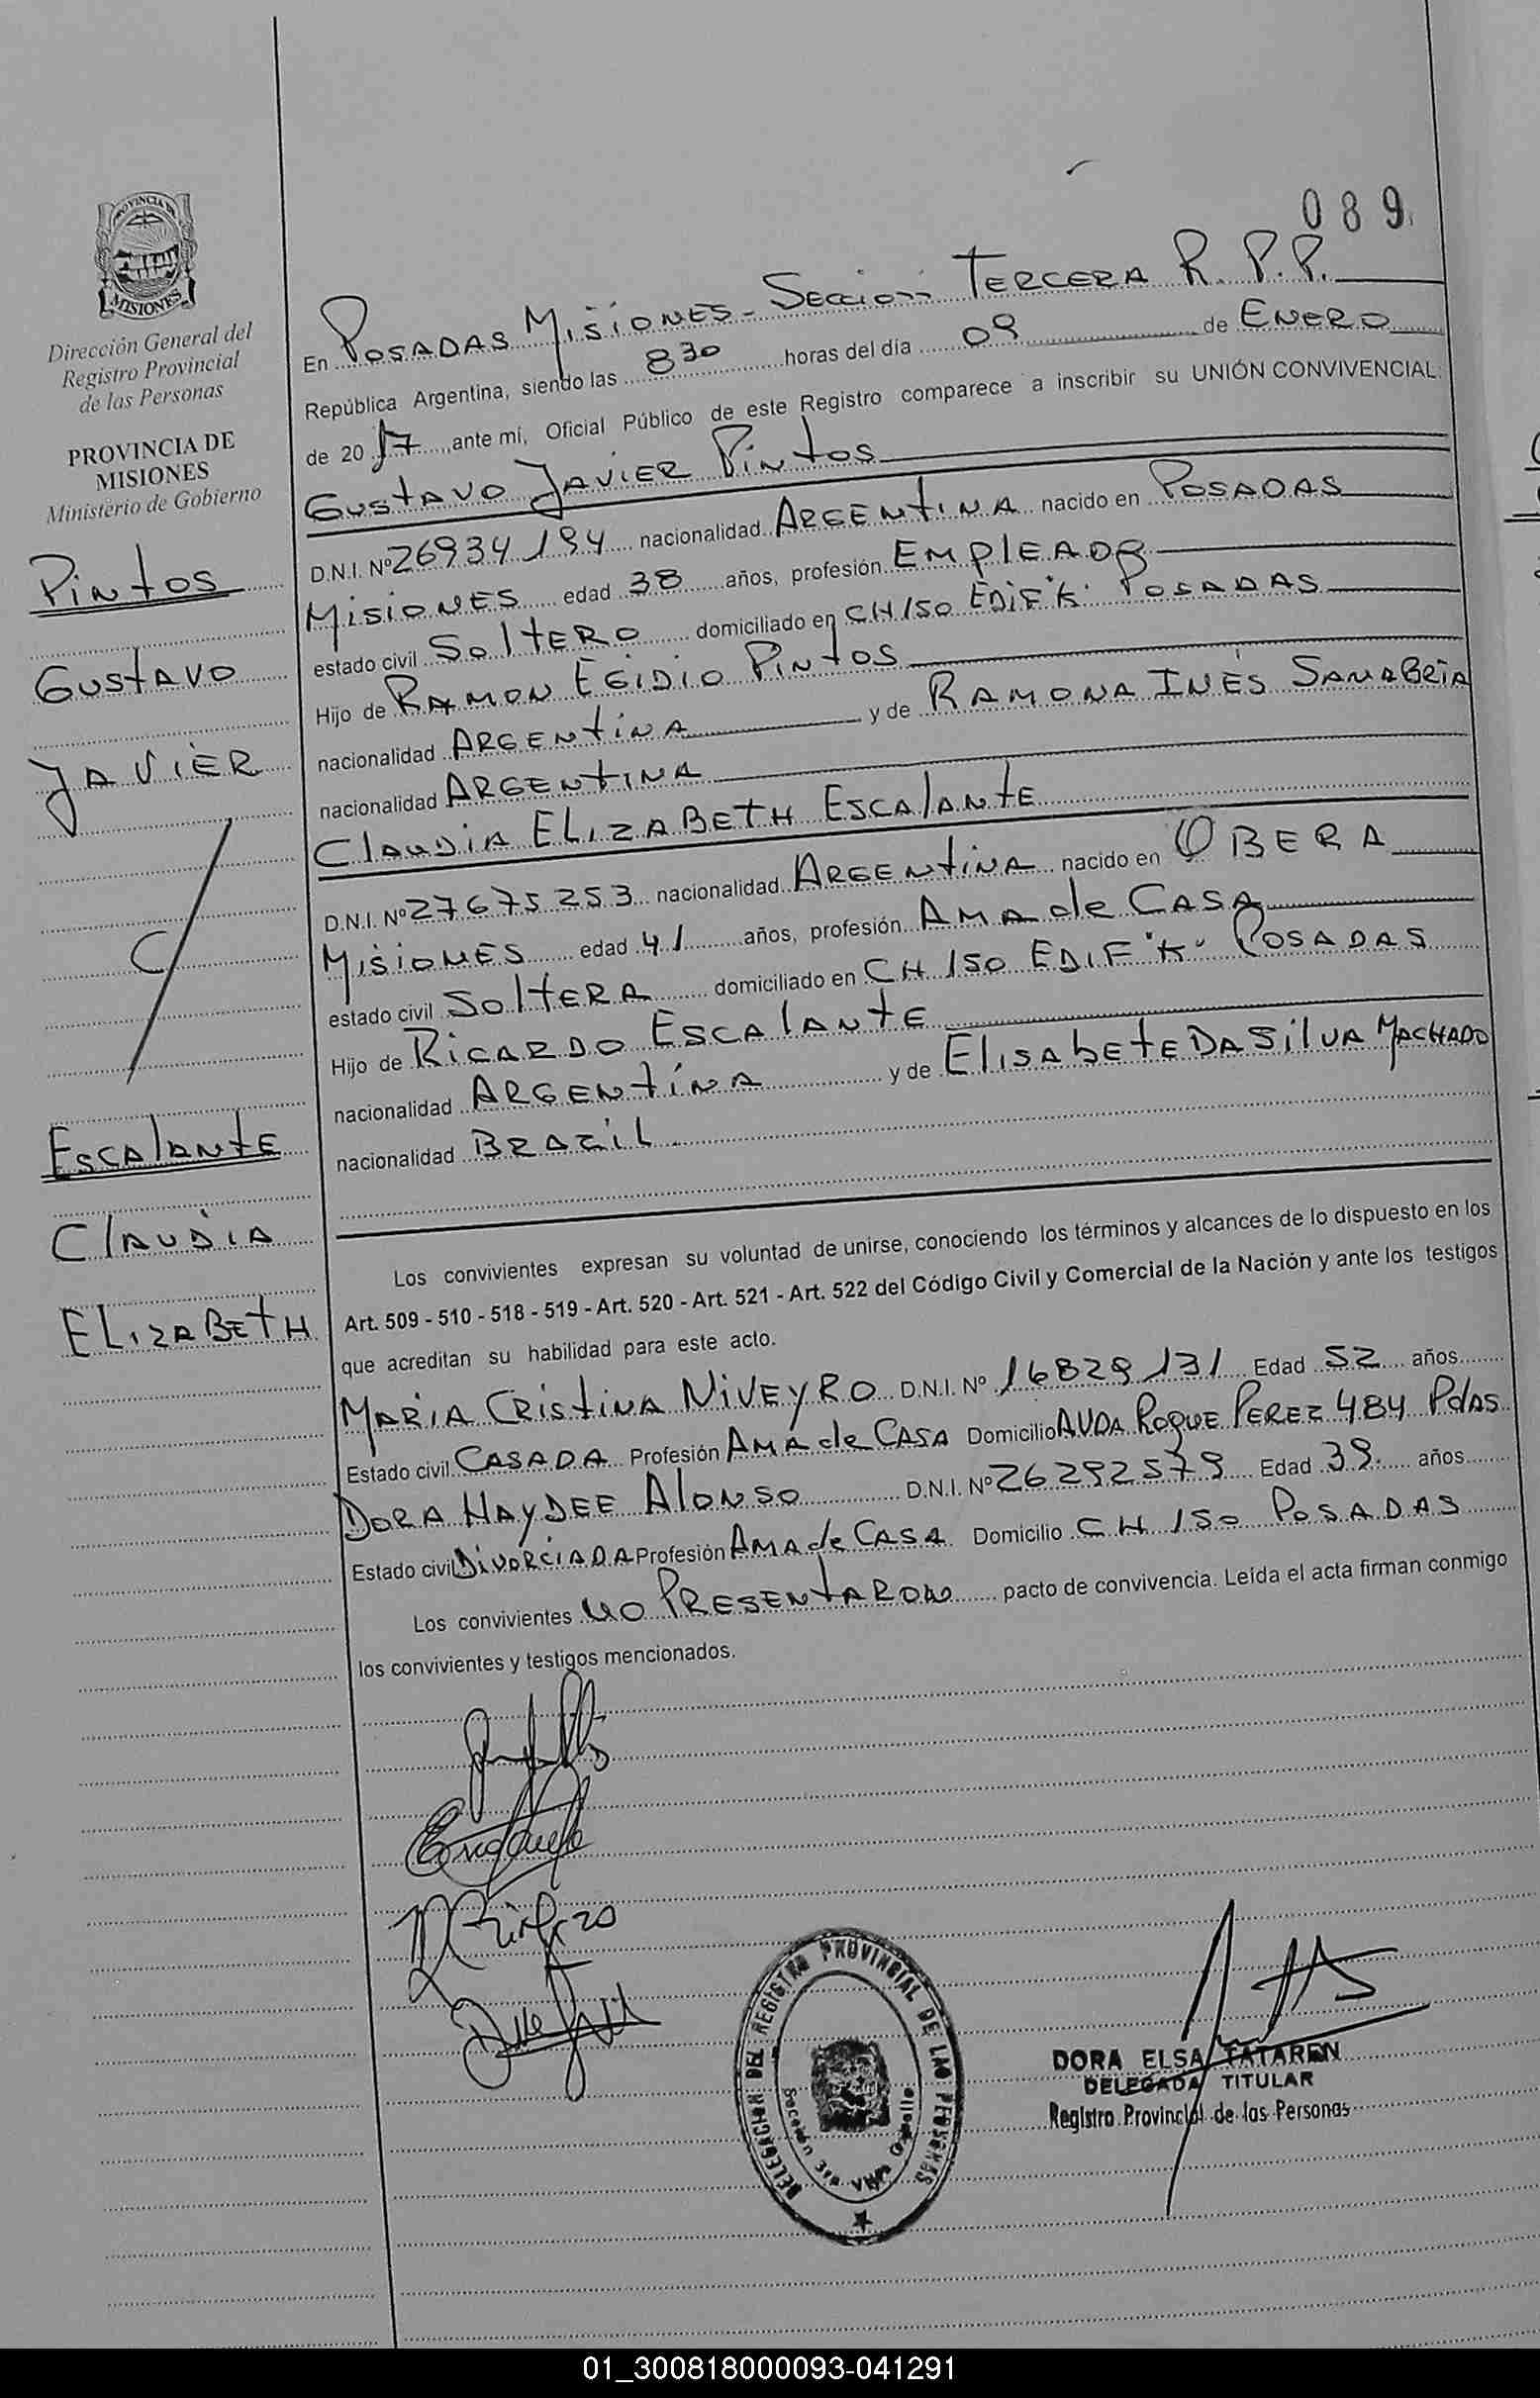 089
PROVINCIA DE
MISIONES
Dirección General del
Registro Provincial
de las Personas
PROVINCIA DE
MISIONES
Ministerio de Gobierno
Pintos
Gustavo
Javier
C/
Escalante
Claudia
Elizabeth
En Posadas Misiones - Sección Tercera R. P. P.
República Argentina, siendo las 8 30 horas del día 09 de Enero
de 20 17 ,ante mí, Oficial Público de este Registro comparece a inscribir su UNIÓN CONVIVENCIAL
Gustavo Javier Pintos
D.N.I. Nº 26934194 nacionalidad Argentina nacido en Posadas
Misiones edad 38 años, profesión Empleado
estado civil Soltero domiciliado en CH 150 Edif "K" Posadas
Hijo de Ramon Egidio Pintos
nacionalidad Argentina y de Ramona Inés Sanabria
nacionalidad Argentina
Claudia Elizabeth Escalante
D.N.I. Nº 27675253 nacionalidad Argentina nacido en Obera
Misiones edad 41 años, profesión Ama de Casa
estado civil Soltera domiciliado en CH 150 Edif "K" Posadas
Hijo de Ricardo Escalante
nacionalidad Argentina y de Elisabete Da Silva Machado
nacionalidad Brazil
Los convivientes expresan su voluntad de unirse, conociendo los términos y alcances de lo dispuesto en los
Art. 509 - 510 - 518 - 519 - Art. 520 - Art. 521 - Art. 522 del Código Civil y Comercial de la Nación y ante los testigos
que acreditan su habilidad para este acto.
Maria Cristina Niveyro D.N.I. Nº 16829131 Edad 52 años
Estado civil Casada Profesión Ama de Casa Domicilio Avda Roque Perez 484 Pdas
Dora Haydee Alonso D.N.I. Nº 26292579 Edad 39 años
Estado civil Divorciada Profesión Ama de Casa Domicilio CH 150 Posadas
Los convivientes no Presentaron pacto de convivencia. Leída el acta firman conmigo
los convivientes y testigos mencionados.
DELEGACION DEL REGISTRO PROVINCIAL DE LAS PERSONAS
Sección 3ra
DORA ELSA TATAREN
DELEGADA TITULAR
Registro Provincial de las Personas
01_300818000093-041291